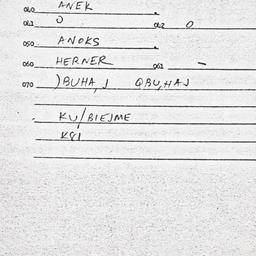 040 ANEK
041 0 042 0
050 ANOKS
060 HERNER 061 -
070 )BUHA, J QBU,HAJ
KU/BIEJME